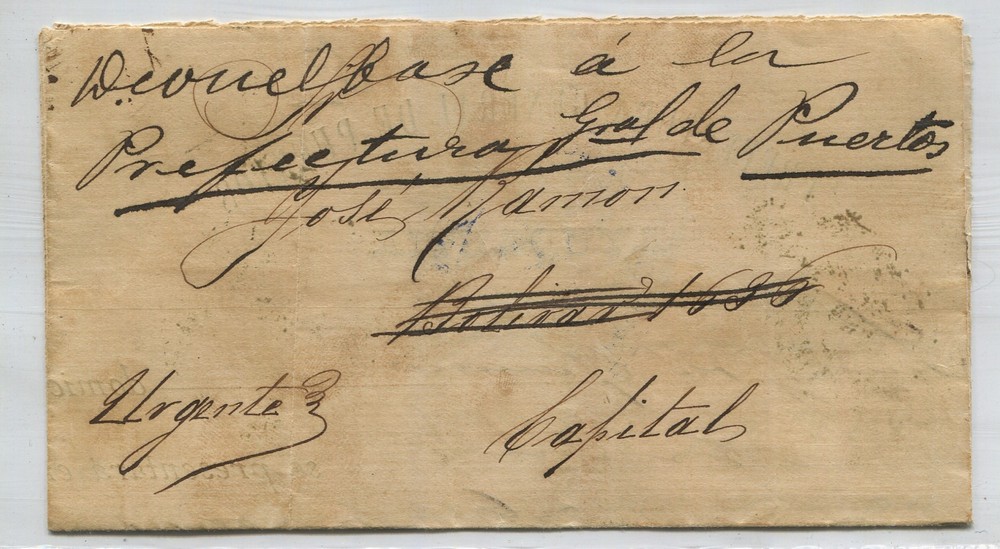 Devuelvase á la
Prefectura Gral de Puertos
José Ramon
Bolivar 1636
Urgente
Capital